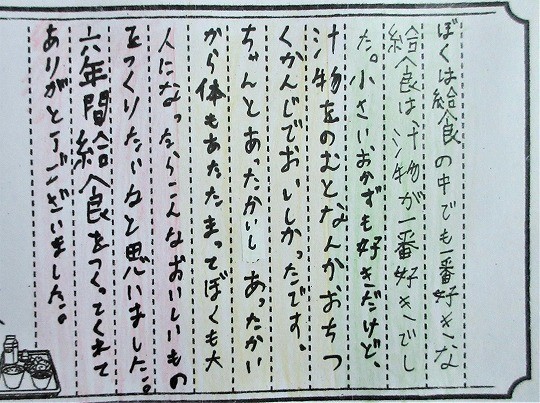 ぼくは給食の中でも一番好きな
給食は汁物が一番好きでし
た。小さいおかずも好きだけど、
汁物をのむとなんかおちつ
くかんじでおいしかったです。
ちゃんとあったかいし、あったかい
から体もあたたまってぼくも大
人になったらこんなおいしいもの
をつくりたいなと思いました。
六年間給食をつくってくれて
ありがとうございました。